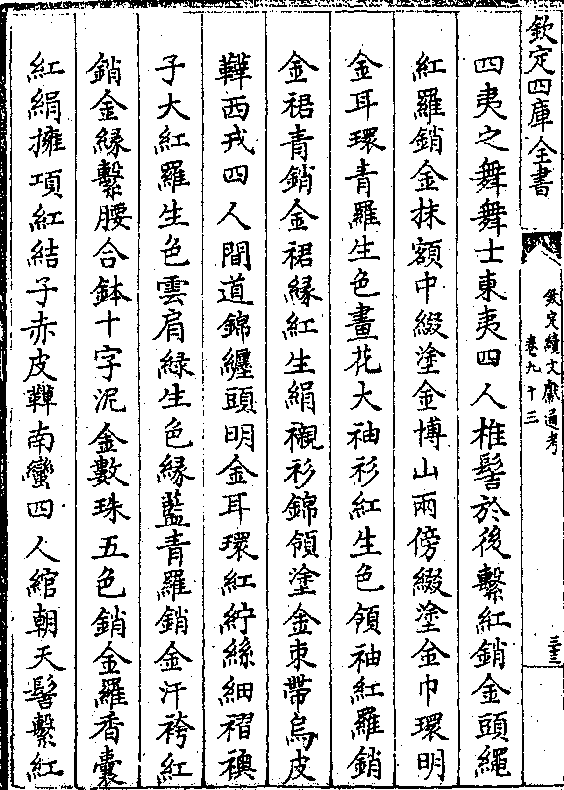 欽定四庫全書
欽定續文獻通考
卷九十三
三三
四夷之舞舞士東夷四人椎髻於後繫紅銷金頭繩
紅羅銷金抹額中綴塗金博山兩傍綴塗金巾環明
金耳環青羅生色畫花大袖衫紅生色領袖紅羅銷
金裙青銷金裙緣紅生絹襯衫錦領塗金束帶烏皮
鞾西戎四人間道錦纏頭明金耳環紅紵絲細褶襖
子大紅羅生色雲肩緑生色緣藍青羅銷金汗袴紅
銷金緣繫腰合鉢十字泥金數珠五色銷金羅香囊
紅絹擁項紅結子赤皮鞾南蠻四人綰朝天髻繫紅